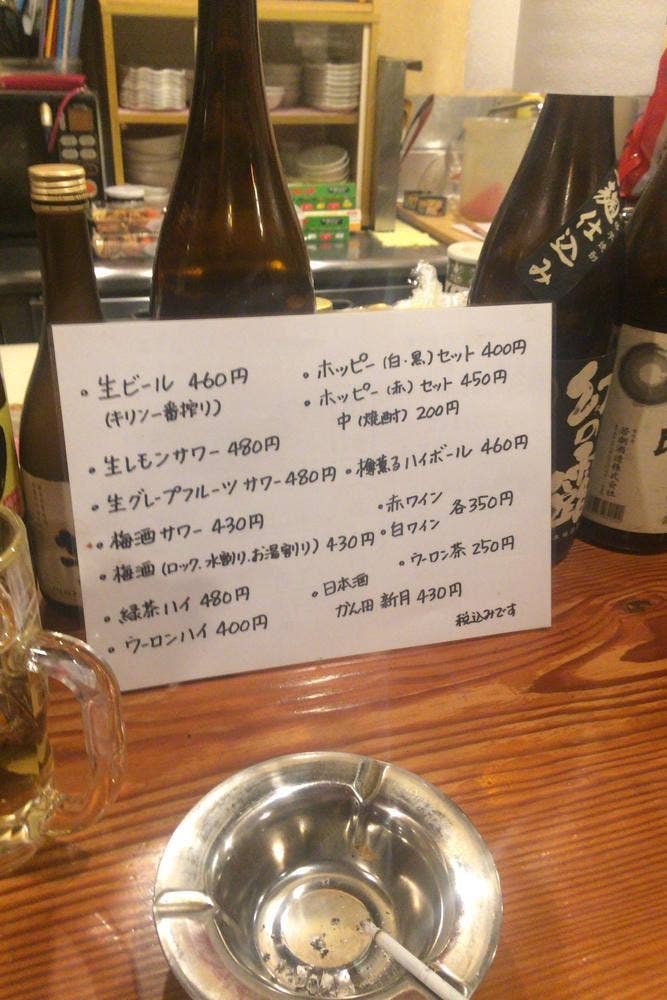 ・生ビール 460円
(キリン一番搾り)
・生レモンサワー 480円
・生グレープフルーツ サワー 480円
・梅酒サワー 430円
・梅酒 (ロック.水割り.お湯割り) 430円
・緑茶ハイ 480円
・ウーロンハイ 400円
・ホッピー (白・黒) セット 400円
・ホッピー (赤) セット 450円
中 (焼酎) 200円
・樽薫るハイボール 460円
・赤ワイン
・白ワイン
各350円
・ウーロン茶 250円
・日本酒
かん用 新月 430円
税込みです
仕込み